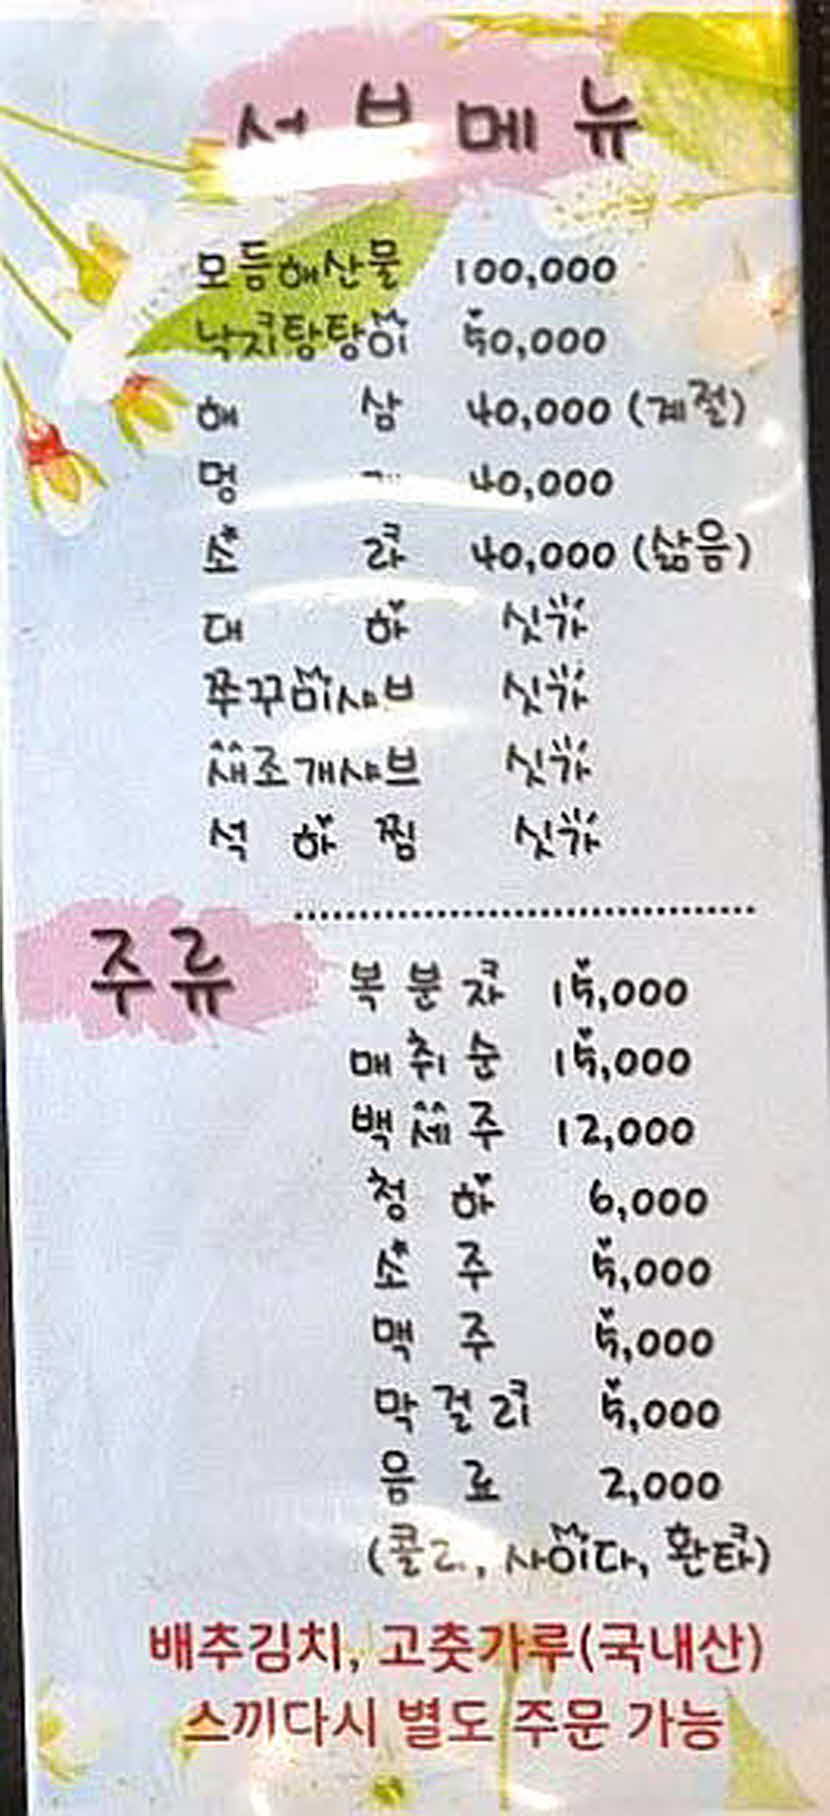 메뉴
모듬해산물 100,000
낙지탕탕이 50,000
해 삼 40,000 (계절)
멍 40,000
소 라 40,000 (삶음)
대 하 싯가
쭈꾸미샤브 싯가
새조개샤브 싯가
석 하 찜 싯가
주류
복 분 자 15,000
매 취 순 15,000
백 세 주 12,000
청 하 6,000
소 주 5,000
맥 주 5,000
막 걸 리 5,000
음 료 2,000
(콜라, 사이다, 환타)
배추김치, 고춧가루(국내산)
스끼다시 별도 주문 가능